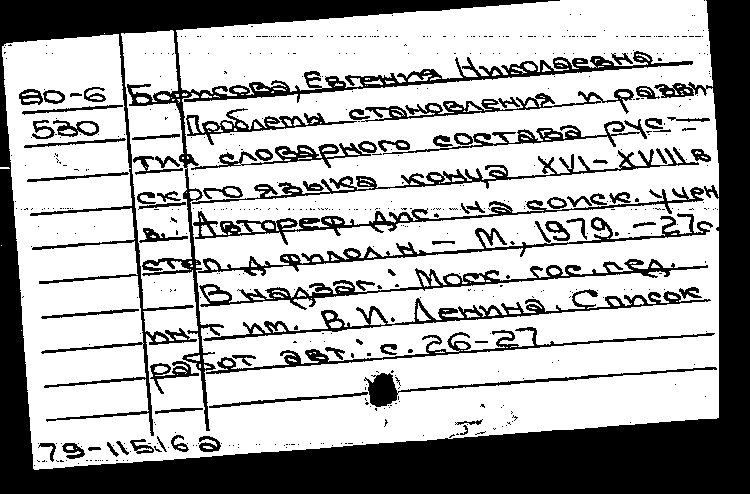 80-6 Борисова, Евгения Николаевна.
530 Проблемы становления и разви-
тия словарного состава рус-
ского языка конца XVI-XVIII в
в.: Автореф. дис. на соиск. учен
степ. д. филол. н. - М., 1979. - 27с.
В надзаг.: Моск. гос. пед.
ин-т им. В.И. Ленина. Список
работ авт.: с. 26-27.
79-11516а